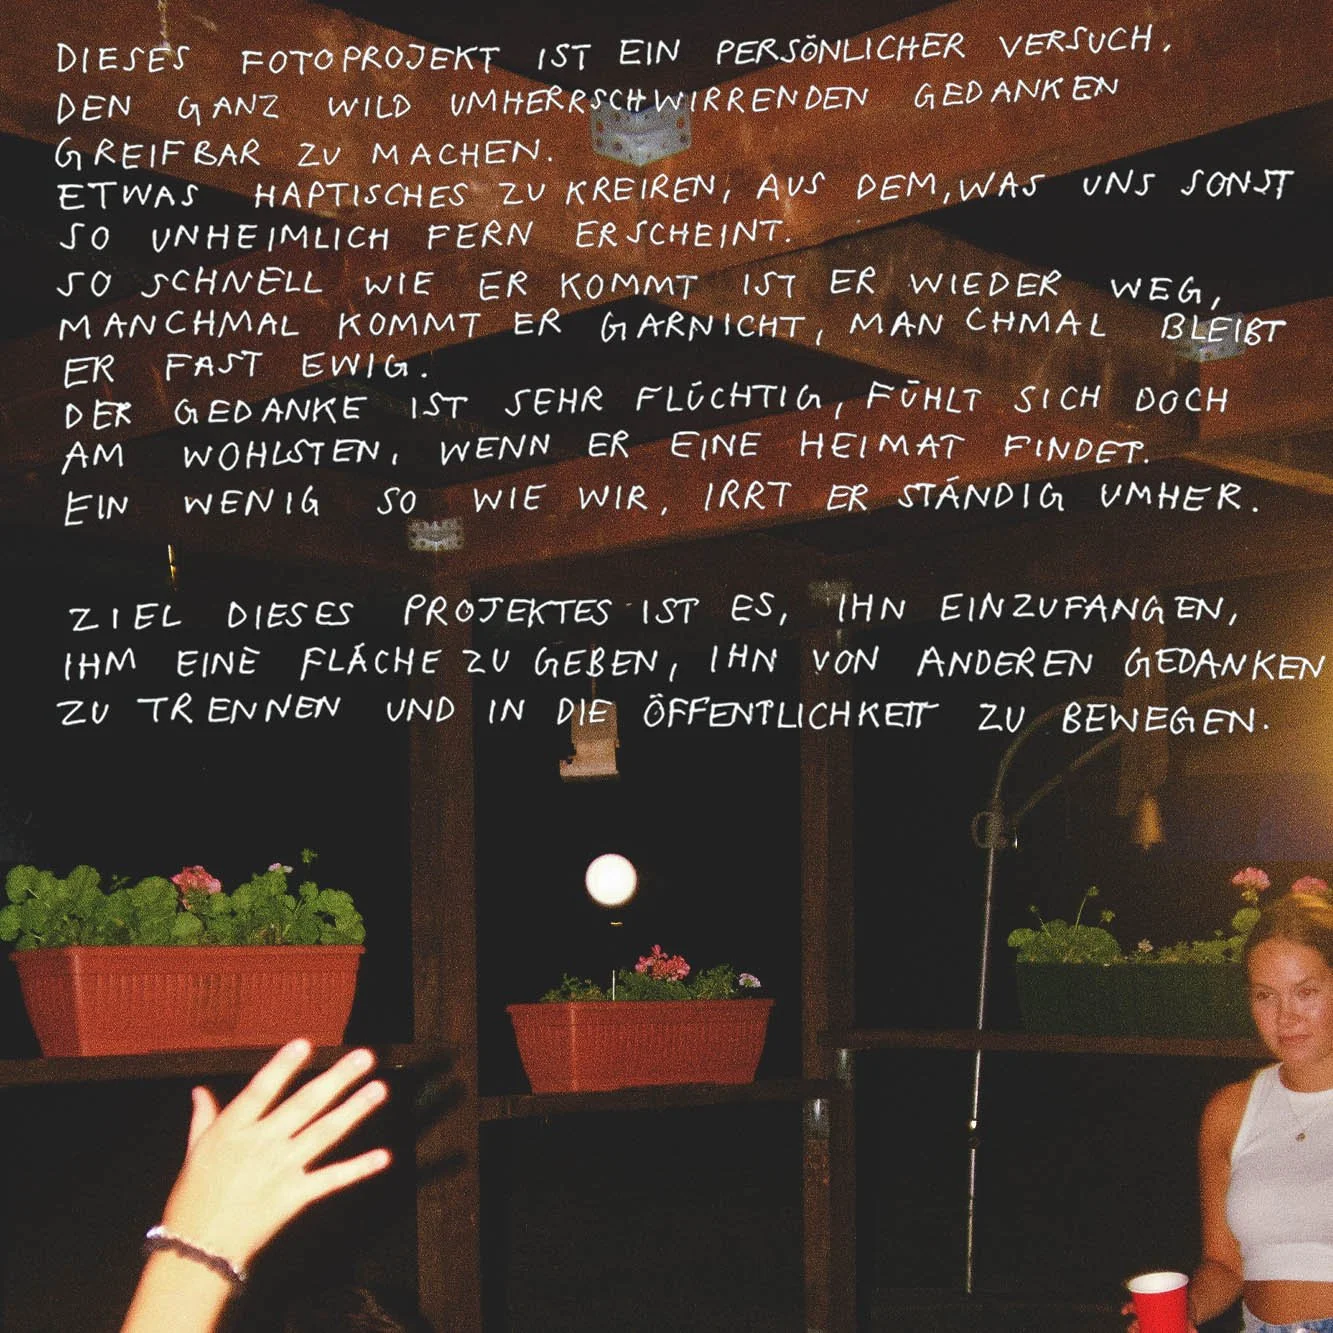 DIESES FOTOPROJEKT IST EIN PERSÖNLICHER VERSUCH,
DEN GANZ WILD UMHERRSCHWIRRENDEN GEDANKEN
GREIFBAR ZU MACHEN.
ETWAS HAPTISCHES ZU KREIREN, AUS DEM, WAS UNS SONST
SO UNHEIMLICH FERN ERSCHEINT.
SO SCHNELL WIE ER KOMMT IST ER WIEDER WEG,
MANCHMAL KOMMT ER GARNICHT, MANCHMAL BLEIBT
ER FAST EWIG.
DER GEDANKE IST SEHR FLÜCHTIG, FÜHLT SICH DOCH
AM WOHLSTEN, WENN ER EINE HEIMAT FINDET.
EIN WENIG SO WIE WIR, IRRT ER STÄNDIG UMHER.
ZIEL DIESES PROJEKTES IST ES, IHN EINZUFANGEN,
IHM EINE FLÄCHE ZU GEBEN, IHN VON ANDEREN GEDANKEN
ZU TRENNEN UND IN DIE ÖFFENTLICHKEIT ZU BEWEGEN.